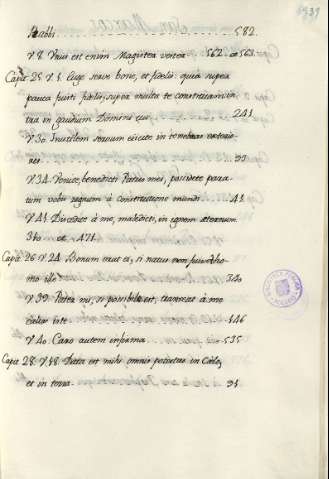 Rabbi 582.
V. 8. Unus est enim Magister vester 562. et 563.
Capª 25 V. Euge serve bone, et fidelis: quia supra
pauca fuisti fidelis, supra multa te constituam in
tra in gaudium Domini tui 241
V. 30. Inutilem servum ejicite in tenebras exterio
res
V. 34. Venite, benedicti Patris mei, possidete para
tum vobis regnum à constitutione mundi 41
V. 41. Discedite à me, maledicti, in ignem æternum
340 et 471.
Capª 26 V. 24. Bonum erat ei, si natus non fuisset ho
mo ille 340
V. 39. Pater mi, si possibile est, transeat à me
calix iste 146
V. 40. Caro autem infirma 535
Capª 28. V. 18. Data est mihi omnis potestas in Cælo,
et in terra